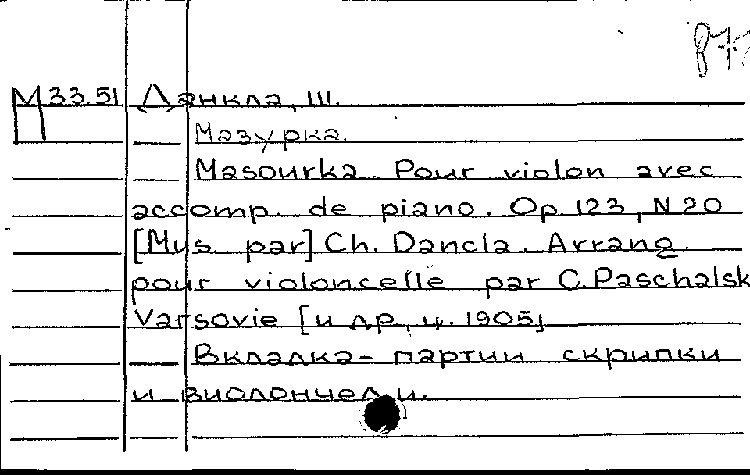 877
М33.51 Данкла, Ш.
Мазурка.
Masourka. Pour violon avec
accomp. de piano. Op 123, N 20
[Mus par] Ch. Dancla. Arrang
pour violoncelle par C. Paschalsk
Varsovie [и др, ц. 1905]
Вкладка - партии скрипки
и виолончели.